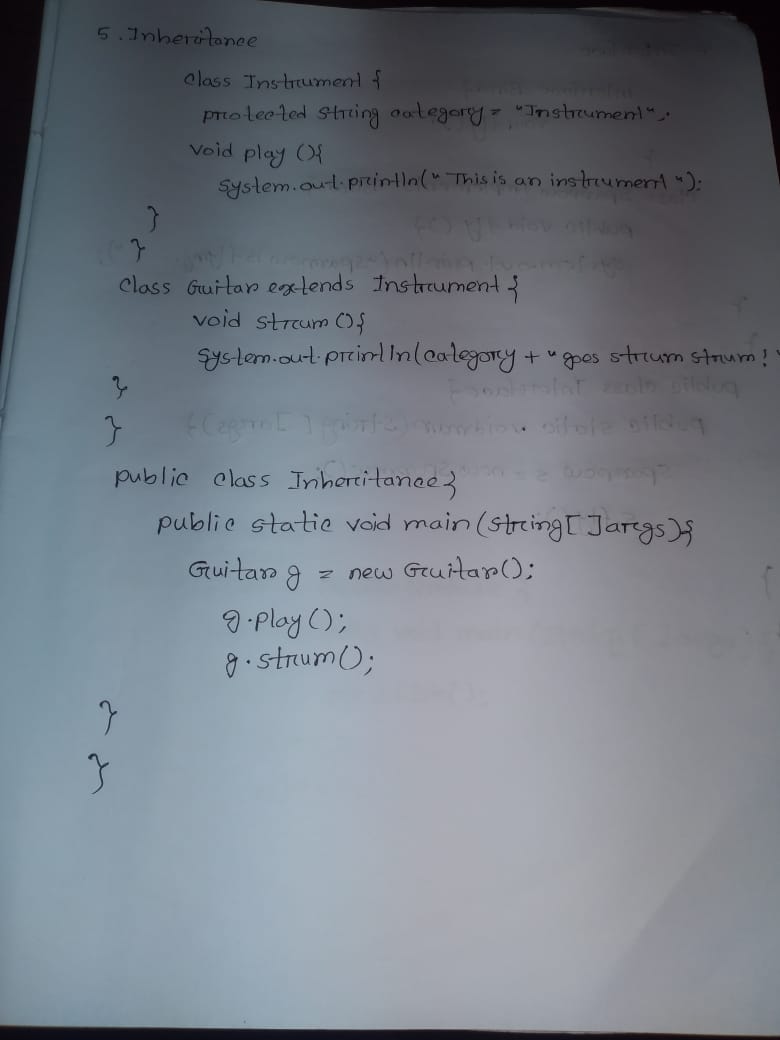 5. Inheritance
class Instrument {
protected String category = "Instrument";
void play (){
System.out.println("This is an instrument");
}
}
class Guitar extends Instrument {
void strum (){
System.out.println(category + " goes strum strum!"
}
}
public class Inheritance {
public static void main (String[] args){
Guitar g = new Guitar();
g.play();
g.strum();
}
}